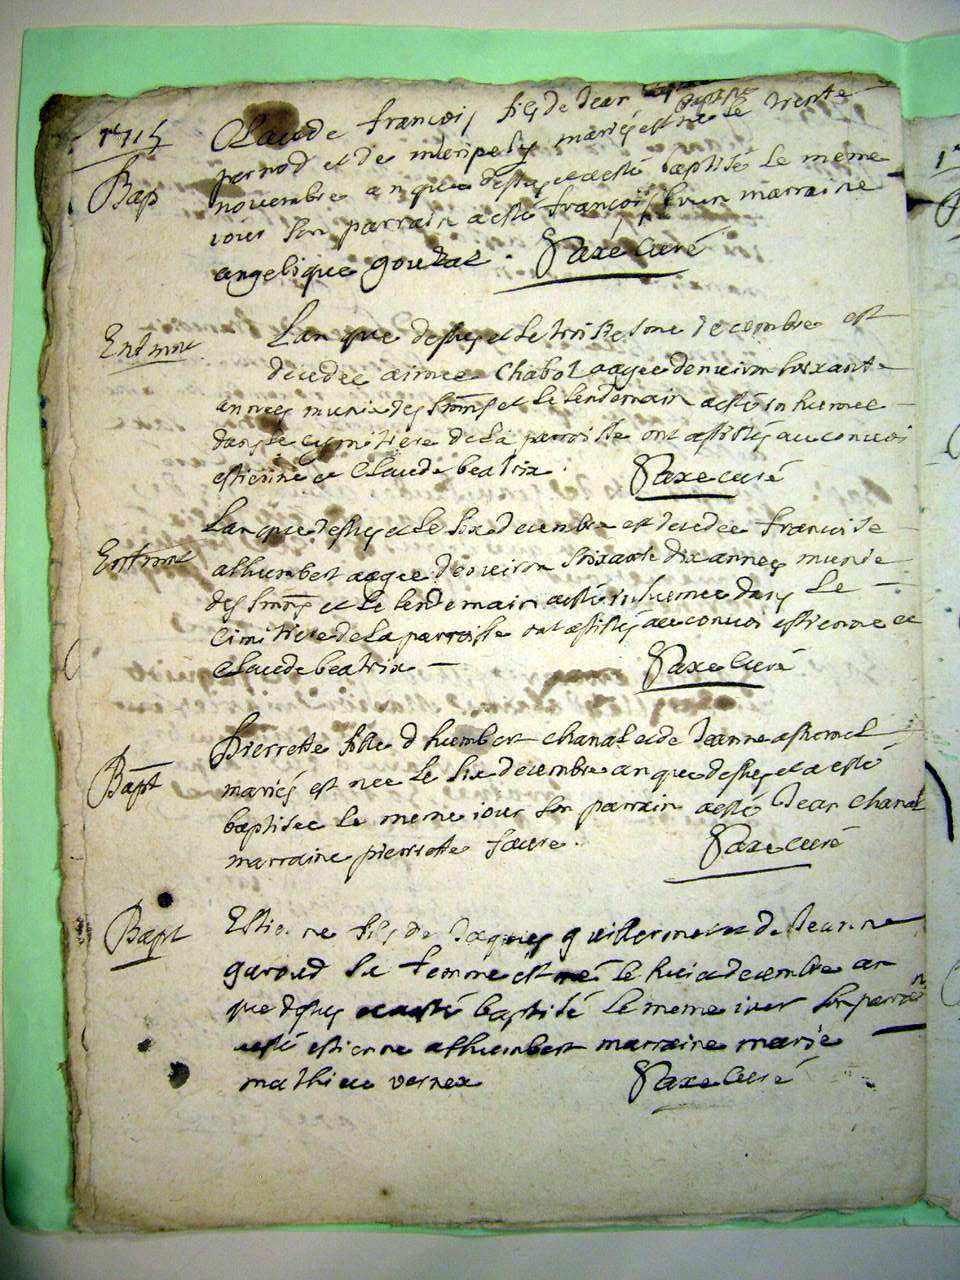 1715
Claude francois fils de Jean baptiste
Bap
pernod et de mariés est né le trente
novembre an que dessus et a esté baptisé le meme
iour son parrain a esté francois marraine
angelique gouzat. Saxe Curé
Entmnt
Lan que dessus et le decembre est
decedee aimee Chabot aagee denuiron soixante
annees munie des Smts et le lendemain a esté inhumee
dans le cymitiere de la parroisse ont assistés au conuoi
estienne et Claude beatrix. Saxe curé
Entmnt
Lan que dessus et le six decembre est decedee francoise
alhumbert aagee denuiron soixante dix annees munie
des Smts et le lendemain a esté inhumee dans le
cimitiere de la parroisse ont assistés au conuoi estienne et
Claude beatrix Saxe Curé
Bapt
Pierrette fille d humbert chanal et de Jeanne
mariés est nee le six decembre an que dessus et a esté
baptisee le meme iour son parrain a esté Jean Chanal
marraine pierrette faure. Saxe curé
Bapt
Estienne fils de Jaques guillermet et de Jeanne
garoud sa femme est né le huict decembre an
que dessus et a esté baptisé le meme iour son parrain
a esté estienne alhumbert marraine marie
mathieu vernex Saxe Curé